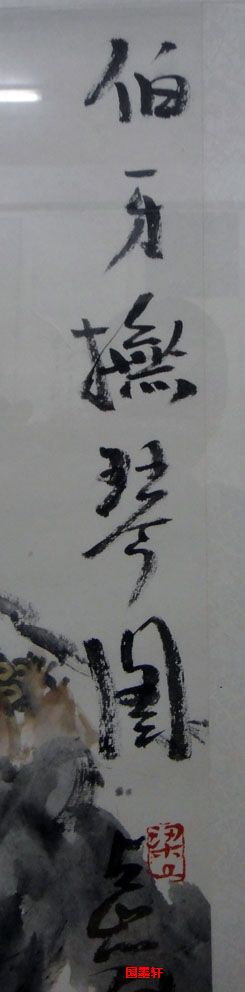 伯牙撫琴圖
国墨轩